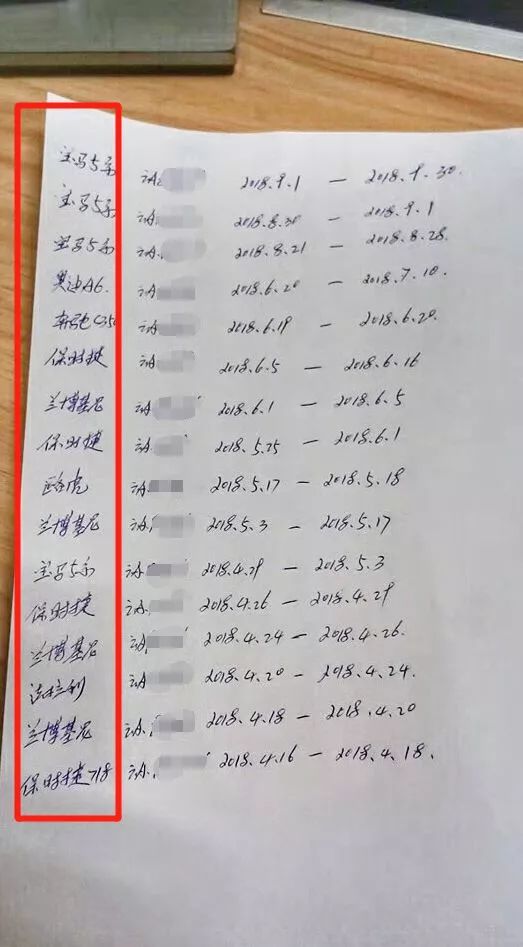 宝马5系 苏A 2018.9.1 — 2018.9.30.
宝马5系 苏A. 2018.8.30 — 2018.9.1
宝马5系 苏A. 2018.8.21 — 2018.8.28.
奥迪A6. 苏A 2018.6.20 — 2018.7.10.
奔驰C350 苏A 2018.6.19 — 2018.6.20.
保时捷 苏A 2018.6.5 — 2018.6.16
兰博基尼 苏A 2018.6.1 — 2018.6.5
保时捷 苏A. 2018.5.25 — 2018.6.1
路虎 苏A. 2018.5.17 — 2018.5.18
兰博基尼 苏A. 2018.5.3 — 2018.5.17
宝马5系 苏A. 2018.4.29 — 2018.5.3
保时捷 苏A. 2018.4.26 — 2018.4.29
兰博基尼 苏A. 2018.4.24 — 2018.4.26.
法拉利 苏A 2018.4.20 — 2018.4.24.
兰博基尼 苏A. 2018.4.18 — 2018.4.20
保时捷718 苏A. 2018.4.16 — 2018.4.18.